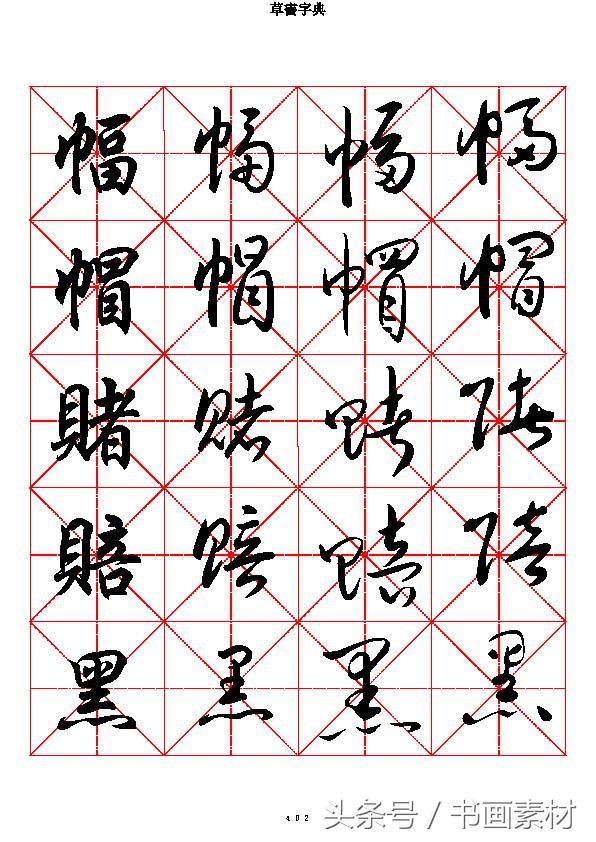 草書字典
幅 幅 幅 幅
帽 帽 帽 帽
賭 賭 賭 賭
賠 賠 賠 賠
黑 黑 黑 黑
402
头条号 / 书画素材